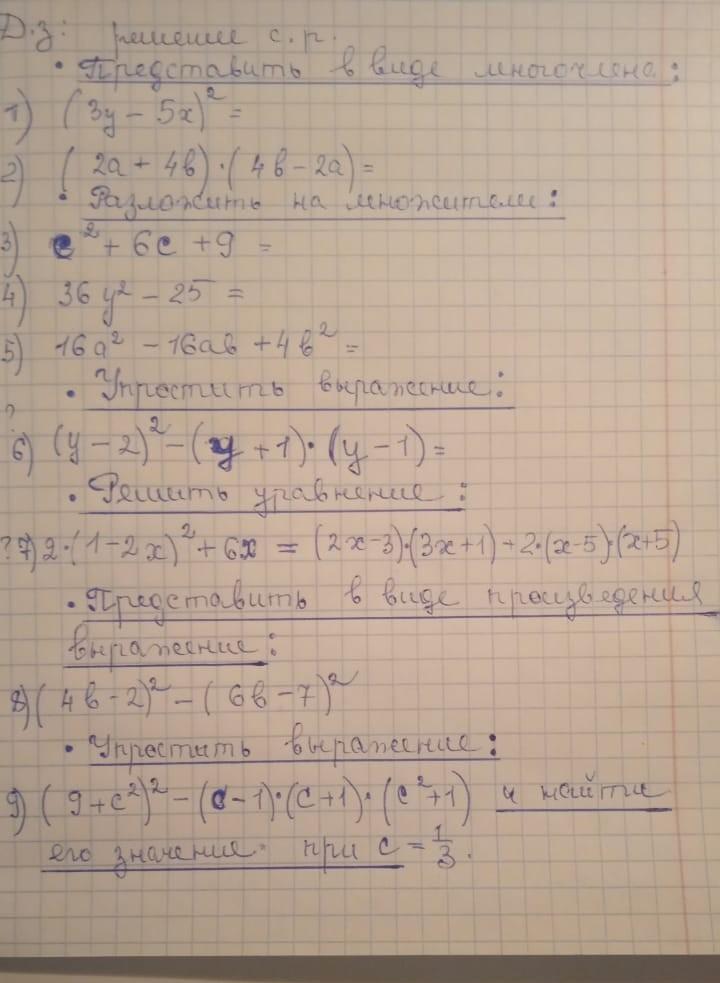 Д.з: решение с.р.
• Представить в виде многочлена:
1) (3y - 5x)² =
2) (2a + 4в)·(4в - 2a) =
• Разложить на множители:
3) c² + 6c + 9 =
4) 36y² - 25 =
5) 16a² - 16aв + 4в² =
• Упростить выражение:
?
6) (y - 2)² - (y + 1)·(y - 1) =
• Решить уравнение:
? 7) 2·(1 - 2x)² + 6x = (2x - 3)·(3x + 1) + 2·(x - 5)·(x + 5)
• Представить в виде произведения
выражение:
8) (4в - 2)² - (6в - 7)²
• Упростить выражение:
9) (9 + c²)² - (c - 1)·(c + 1)·(c² + 1) и найти
его значение при c = 1/3.